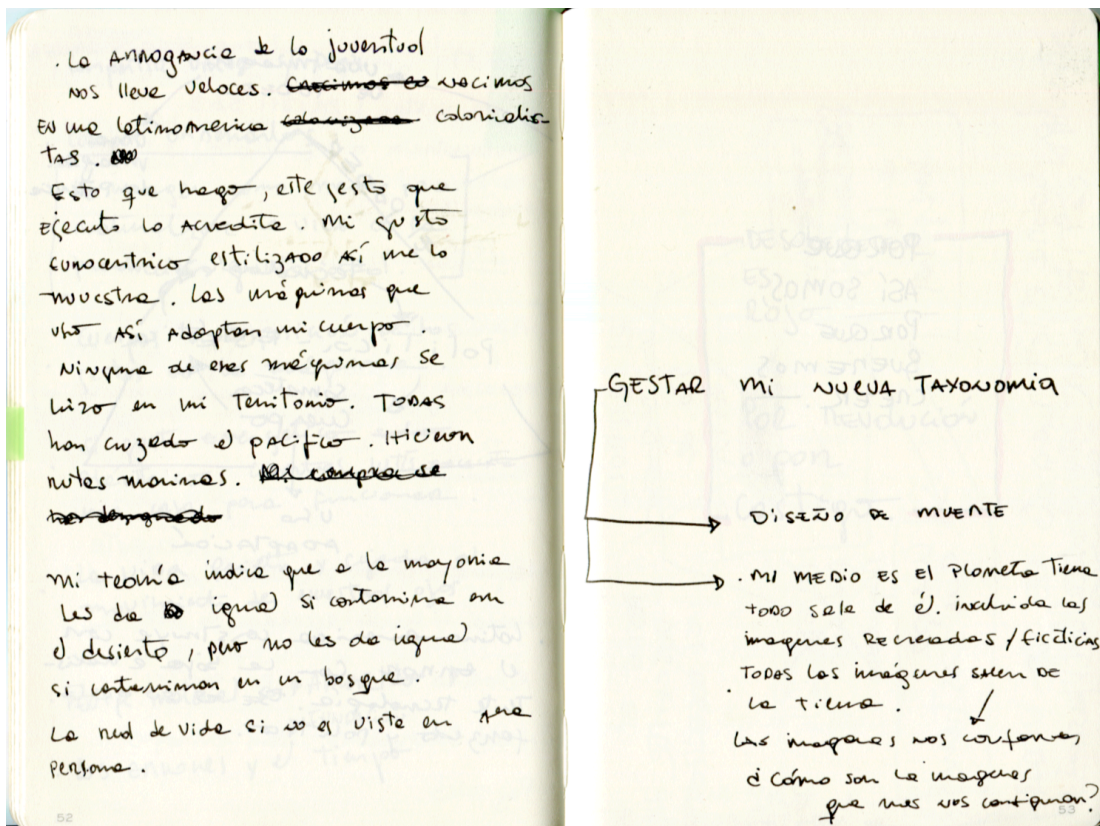 . La ARROGANCIA de la juventud
nos lleva veloces. nacimos
EN una latinoamerica colonialis-
TAS.
Esto que hago, este gesto que
EJECUTO LO ACREDITA. Mi gusto
eurocentrico ESTILIZADO ASÍ me lo
muestra. Las máquinas que
uso ASÍ Adaptan mi cuerpo.
Ninguna de esas máquinas se
hizo en mi TERRITORIO. TODAS
han cruzado el pacífico. Hicieron
rutas marinas. Mi compra se
han desangrado
Mi teoría indica que a la mayoria
les da igual si contamina en
el desierto, pero no les da igual
si contaminan en un bosque.
La red de vida si no es vista en
persona.
52
GESTAR MI NUEVA TAXONOMÍA
DISEÑO DE MUERTE
. MI MEDIO ES EL Planeta Tierra
TODO sale de él. incluida las
imagenes Recreadas / ficticias
TODAS las imágenes SALEN DE
La tierra.
Las imagenes nos conforman
¿Cómo son la imagenes
que mas nos configuran?
53